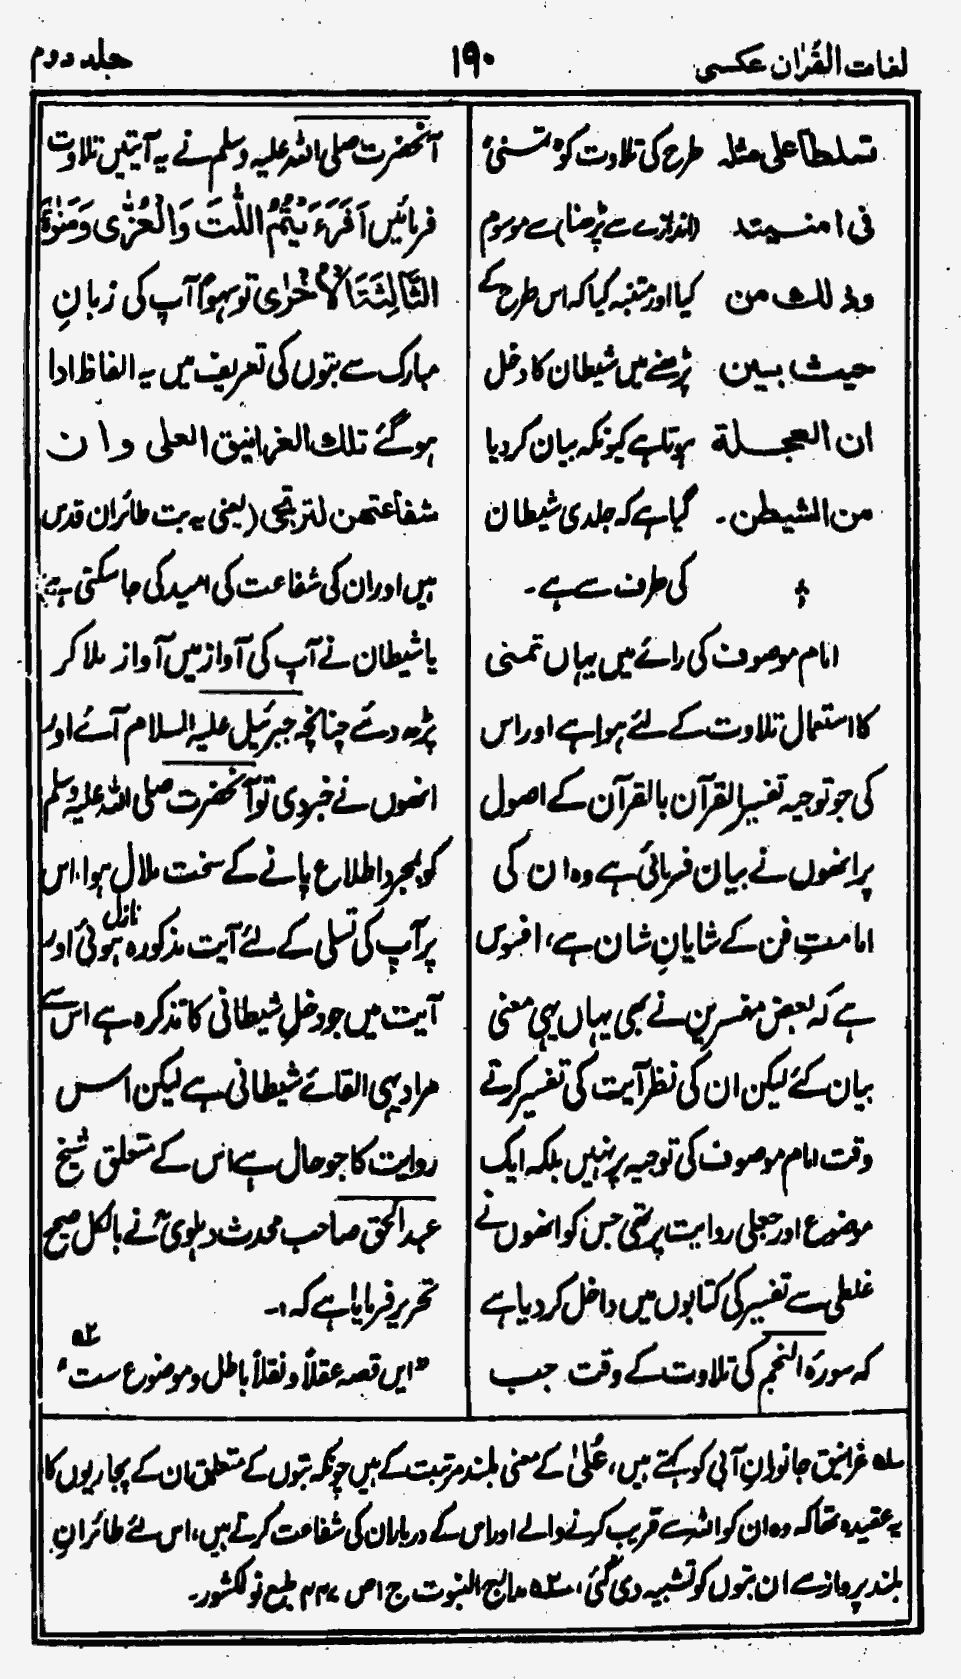 لغات القُرْاٰن عکسی
۱۹۰
جلد دوم
تسلطا علی مثلہ طرح کی تلاوت کو "تمنی"
فی امنیتہ (اندازے سے پڑھنا) سے موسوم
وذلك من کیا اور متنبہ کیا کہ اس طرح کے
حیث بین پڑھنے میں شیطان کا دخل
ان العجلة ہوتا ہے کیونکہ بیان کر دیا
من الشیطن۔ گیا ہے کہ جلدی شیطان
کی طرف سے ہے۔
امام موصوف کی رائے میں یہاں تمنی
کا استعمال تلاوت کے لئے ہوا ہے اور اس
کی جو توجیہ تفسیر القرآن بالقرآن کے اصول
پر انھوں نے بیان فرمائی ہے وہ ان کی
امامتِ فن کے شایانِ شان ہے، افسوس
ہے کہ بعض مفسرین نے بھی یہاں یہی معنی
بیان کئے لیکن ان کی نظر آیت کی تفسیر کرتے
وقت امام موصوف کی توجیہ پر نہیں بلکہ ایک
موضوع اور جعلی روایت پر تھی جس کو انھوں نے
غلطی سے تفسیر کی کتابوں میں داخل کر دیا ہے
کہ سورۂ النجم کی تلاوت کے وقت جب
آنحضرت صلی اللہ علیہ وسلم نے یہ آیتیں تلاوت
فرمائیں اَفَرَءَيْتُمُ اللّٰتَ وَالْعُزّٰى وَمَنٰوةَ
الثَّالِثَةَ الْاُخْرٰى تو سہوًا آپ کی زبانِ
مبارک سے بتوں کی تعریف میں یہ الفاظ ادا
ہو گئے تلك الغرانیق العلی وان
شفاعتھن لترتجی (یعنی یہ بت طائران قدس
ہیں اور ان کی شفاعت کی امید کی جا سکتی ہے)
یا شیطان نے آپ کی آواز میں آواز ملا کر
پڑھ دئے چنانچہ جبرئیل علیہ السلام آئے اور
انھوں نے خبر دی تو آنحضرت صلی اللہ علیہ وسلم
کو بمجرد اطلاع پانے کے سخت ملال ہوا، اس
پر آپ کی تسلی کے لئے آیت مذکورہ نازل ہوئی اور
آیت میں جو دخلِ شیطانی کا تذکرہ ہے اس سے
مراد یہی القائے شیطانی ہے لیکن اس
روایت کا جو حال ہے اس کے متعلق شیخ
عبدالحق صاحب محدث دہلویؒ نے بالکل صحیح
تحریر فرمایا ہے کہ :-
"ایں قصہ عقلاً و نقلاً باطل و موضوع ست" ؂۲
؂۱ غرانیق جانورانِ آبی کو کہتے ہیں، عُلیٰ کے معنی بلند مرتبت کے ہیں چونکہ بتوں کے متعلق ان کے پجاریوں کا
یہ عقیدہ تھا کہ وہ ان کو اللہ سے قریب کرنے والے اور اس کے دربار ان کی شفاعت کرتے ہیں، اس لئے طائرانِ
بلند پرواز سے ان بتوں کو تشبیہ دی گئی، ؂۲ مدارج النبوت ج ۱ ص ۴۴۷ طبع نولکشور۔